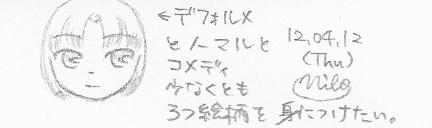 ←デフォルメ
とノーマルと
コメディ
少なくとも
3つ絵柄を身につけたい。
12,04,12
(Thu)
Milo